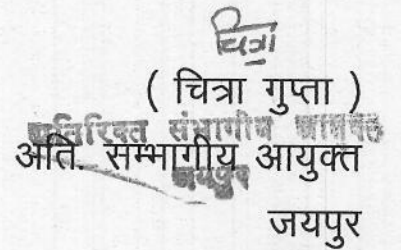 चित्रा
( चित्रा गुप्ता )
अतिरिक्त संभागीय आयुक्त
अति. सम्भागीय आयुक्त
जयपुर
जयपुर